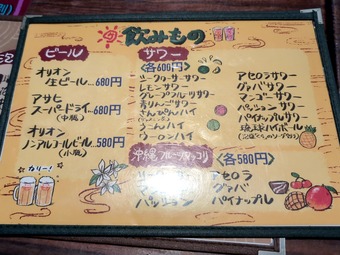 飲みもの
ビール
オリオン
生ビール…680円
アサヒ
スーパードライ…680円
(中瓶)
オリオン
ノンアルコールビール…580円
(小瓶)
カリー!
サワー
<各600円>
シークヮーサーサワー
レモンサワー
グレープフルーツサワー
青りんごサワー
さんぴんハイ
うっちんハイ
ウーロンハイ
アセロラサワー
グァバサワー
マンゴーサワー
パッションサワー
パイナップルサワー
琉球ハイボール
沖縄フルーツ
各580円
マンゴー
パッション
アセロラ
グァバ
パイナップル